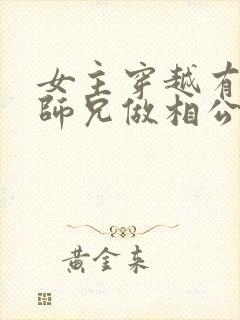 女主穿越有
師兄做相公
黃金來